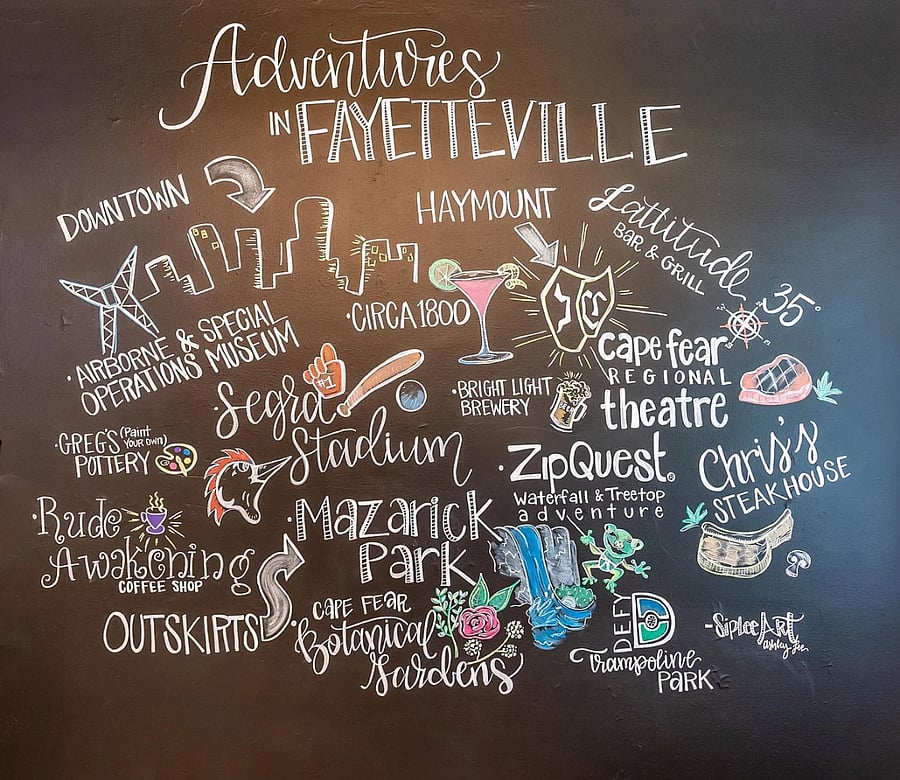 Adventures
IN FAYETTEVILLE
DOWNTOWN
HAYMOUNT
Lattitude 35°
BAR & GRILL
·AIRBORNE & SPECIAL
OPERATIONS MUSEUM
·CIRCA 1800
cape fear
REGIONAL
theatre
#1
·Segra
Stadium
·BRIGHT LIGHT
BREWERY
BEER
·GREG'S (Paint
YOUR OWN)
POTTERY
·ZipQuest
Waterfall & Treetop
adventure
Chris's
STEAKHOUSE
·Rude
Awakening
COFFEE SHOP
·Mazarick
Park
OUTSKIRTS
·CAPE FEAR
Botanical
Gardens
DEFY
D
Trampoline
PARK
Ashley Lee